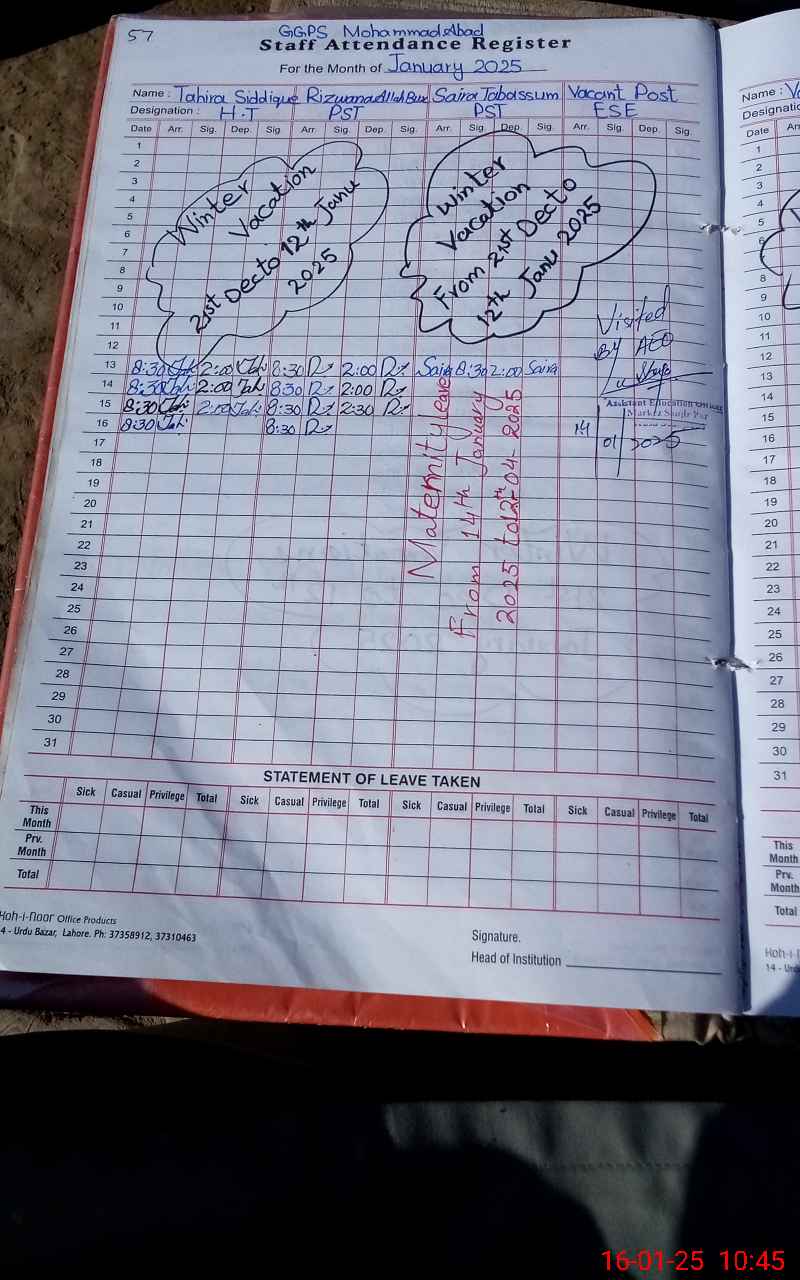 57
GGPS Mohammadabad
Staff Attendance Register
For the Month of January 2025
Name : Tahira Siddique Rizwana Allah Bux Saira Tabassum Vacant Post
Designation : H.T PST PST ESE
Date Arr. Sig. Dep. Sig. Arr. Sig. Dep. Sig. Arr. Sig. Dep. Sig. Arr. Sig. Dep. Sig.
1
2
3
4
5
6
7
8
9
10
11
12
Winter
Vacation
21st Dec to 12th Janu
2025
Winter
Vacation
From 21st Dec to
12th Janu 2025
Visited
By AEO
13 8:30 Tah 2:00 Tah 8:30 2:00 Saira 8:30 2:00 Saira
14 8:30 Tah: 2:00 Tah: 8:30 2:00
15 8:30 Tah: 2:00 Tah: 8:30 2:30
16 8:30 Tah: 8:30
Assistant Education Officer
Markaz
14 01 2025
Maternity leave
From 14th January
2025 to 12th-04-2025
17
18
19
20
21
22
23
24
25
26
27
28
29
30
31
STATEMENT OF LEAVE TAKEN
Sick Casual Privilege Total Sick Casual Privilege Total Sick Casual Privilege Total Sick Casual Privilege Total
This Month
Prv. Month
Total
Koh-i-noor Office Products
4 - Urdu Bazar, Lahore. Ph: 37358912, 37310463
Signature.
Head of Institution
Name : V
Designatio
Date Arr
1
2
3
4
5
6
8
9
10
11
12
13
14
15
16
17
18
19
20
21
22
23
24
25
26
27
28
29
30
31
This Month
Prv. Month
Total
Koh-i-n
14 - Urdu
16-01-25 10:45